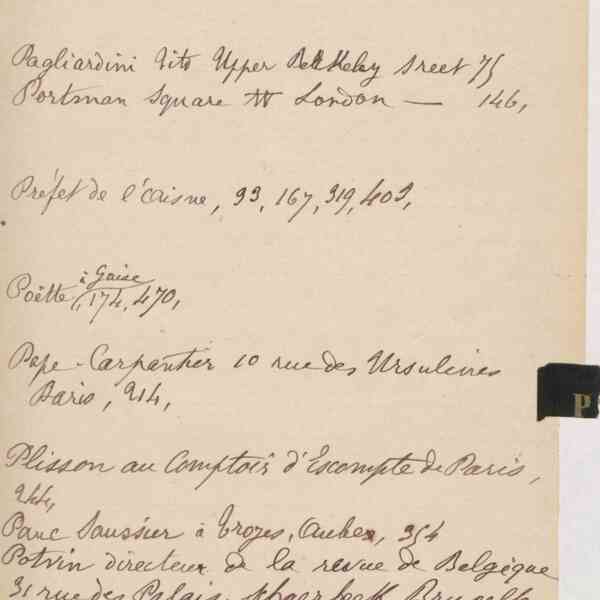 Pagliardini Tito Upper Berkeley Sreet 75
Portman Square W London — 146,
Préfet de l'Aisne, 93, 167, 319, 403,
à Guise
Poëtte, 174, 470,
Pape-Carpantier 10 rue des Ursulines
Paris, 214,
P
Plisson au Comptoir d'Escompte de Paris,
244,
Saussier à Troyes, Aube, 354
Potvin directeur de la revue de Belgique
31 rue des Palais, Bruxelles